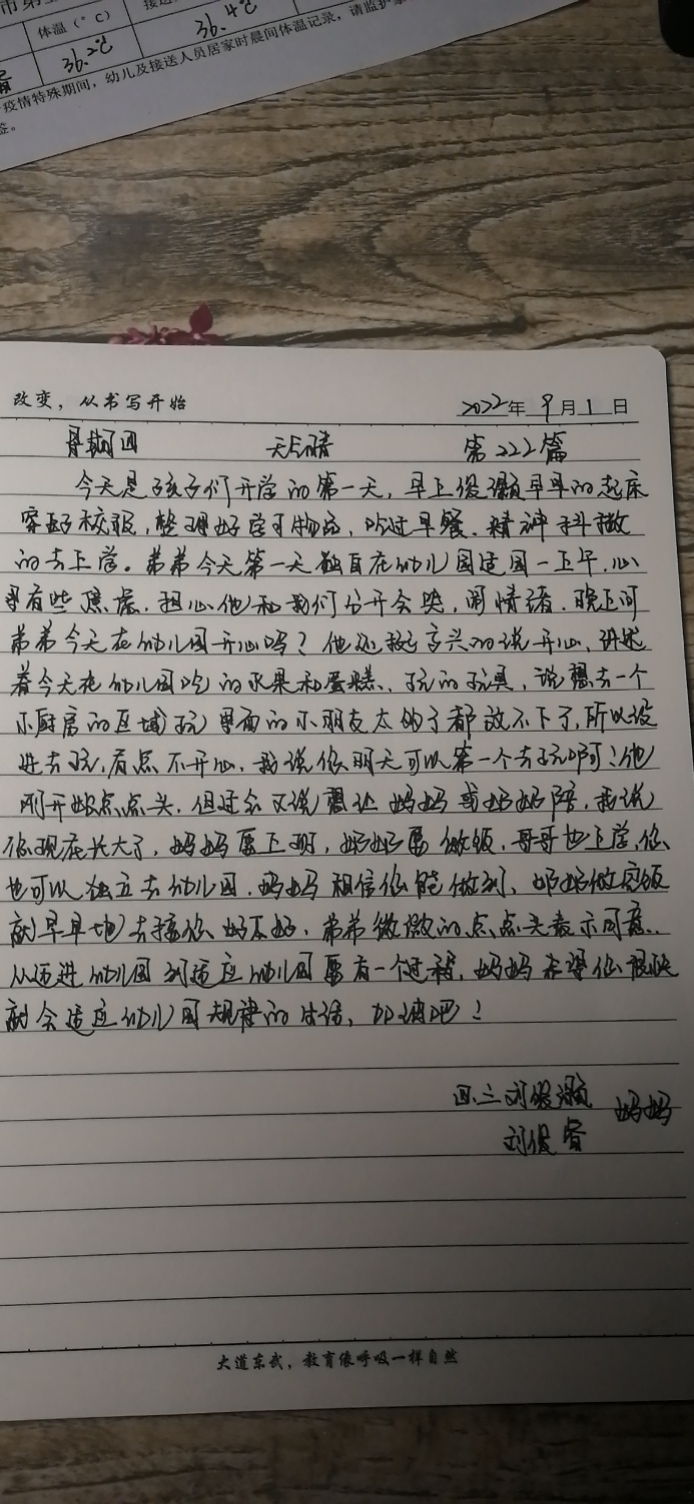 体温(°C)
36.2℃
36.4℃
疫情特殊期间，幼儿及接送人员居家时晨间体温记录，请监护
签。
改变，从书写开始
2022年 9月 1日
星期四 天气晴 第222篇
今天是孩子们开学的第一天，早上俊灏早早的起床
穿好校服，整理好自己物品，吃过早餐，精神抖擞
的去上学。弟弟今天第一天独自在幼儿园适园一上午，心
里有些焦虑，担心他和我们分开会哭，闹情绪，晚上问
弟弟今天在幼儿园开心吗？他还挺高兴的说开心，讲述
着今天在幼儿园吃的水果和蛋糕、玩的玩具，说想去一个
小厨房的区域玩里面的小朋友太多了都放不下了，所以没
进去玩，有点不开心，我说你明天可以第一个去玩啊！他
刚开始点点头，但还会又说想让妈妈或奶奶陪，我说
你现在长大了，妈妈要上班，奶奶要做饭，哥哥也上学，你
也可以独立去幼儿园，妈妈相信你能做到，奶奶做完饭
就早早地去接你好不好，弟弟微微的点点头表示同意..
从适进幼儿园到适应幼儿园要有一个过程，妈妈希望你很快
就会适应幼儿园规律的生活，加油吧！
四.三刘俊灏 妈妈
刘俊睿
大道东武，教育像呼吸一样自然